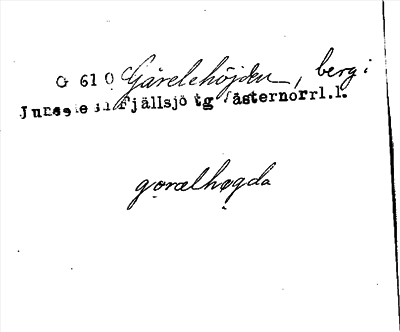 G 610 Gårelehöjden, berg i
Junsele sn Fjällsjö tg Västernorrl.l.
gorælhøgda